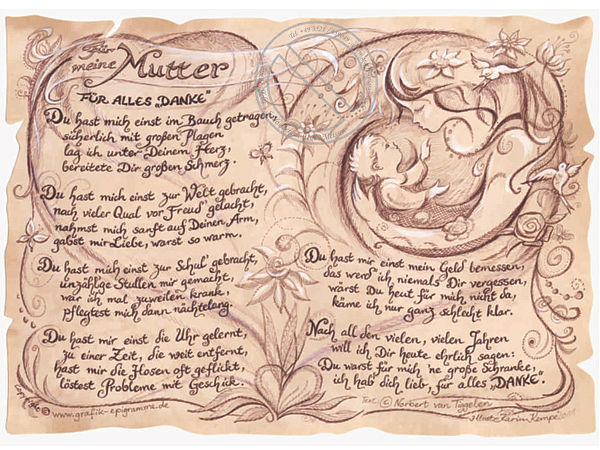 für
meine Mutter
FÜR ALLES „DANKE"
Du hast mich einst im Bauch getragen,
sicherlich mit großen Plagen
lag ich unter Deinem Herz,
bereitete Dir großen Schmerz.
Du hast mich einst zur Welt gebracht,
nach vieler Qual vor Freud' gelacht,
nahmst mich sanft auf Deinen Arm,
gabst mir Liebe, warst so warm.
Du hast mich einst zur Schul' gebracht,
unzählge Stullen mir gemacht,
war ich mal zuweilen krank,
pflegtest mich dann nächtelang.
Du hast mir einst die Uhr gelernt,
zu einer Zeit, die weit entfernt,
hast mir die Hosen oft geflickt,
löstest Probleme mit Geschick.
Du hast mir einst mein Geld bemessen,
das werd' ich niemals Dir vergessen,
wärst Du heut für mich nicht da,
käme ich nur ganz schlecht klar.
Nach all den vielen, vielen Jahren
will ich Dir heute ehrlich sagen:
Du warst für mich 'ne große Schranke,
ich hab dich lieb, für alles „DANKE".
Copyright © www.grafik-epigramme.de
Text © Norbert van Tiggelen
Illustr. Karin Kempe